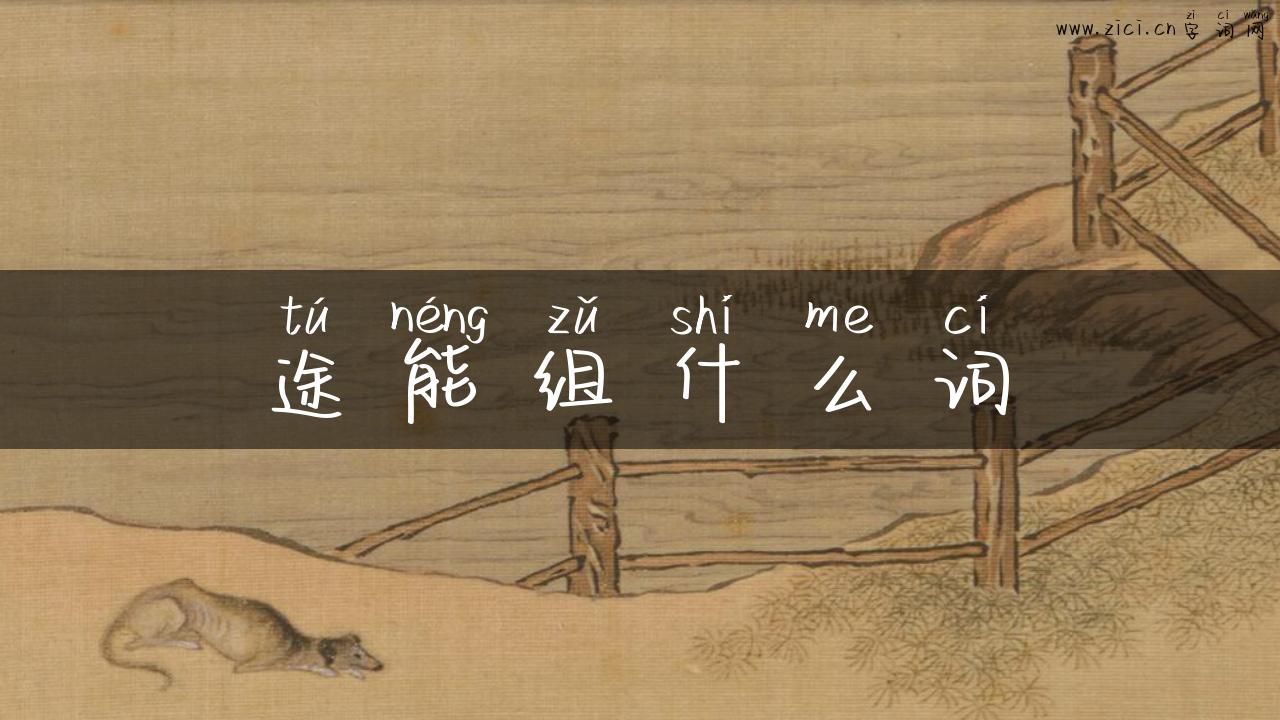 zì cí wǎng
www.zici.cn 字 词 网
tú néng zǔ shí me cí
途 能 组 什 么 词